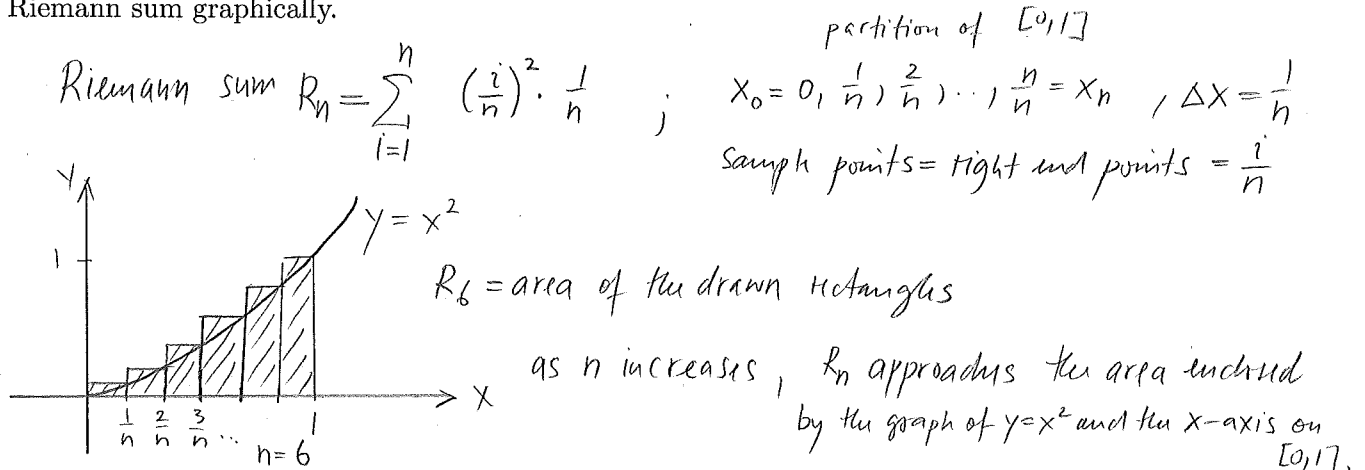 Riemann sum graphically.
partition of [0,1]
Riemann sum R_n = \sum_{i=1}^{n} (\frac{i}{n})^2 \cdot \frac{1}{n} ; x_0 = 0, \frac{1}{n}, \frac{2}{n}, .., \frac{n}{n} = x_n , \Delta x = \frac{1}{n}
sample points = right end points = \frac{i}{n}
y
y = x^2
1
R_6 = area of the drawn rectangles
as n increases, R_n approaches the area enclosed
by the graph of y=x^2 and the x-axis on
[0,1].
x
\frac{1}{n} \frac{2}{n} \frac{3}{n} .. 1
n=6